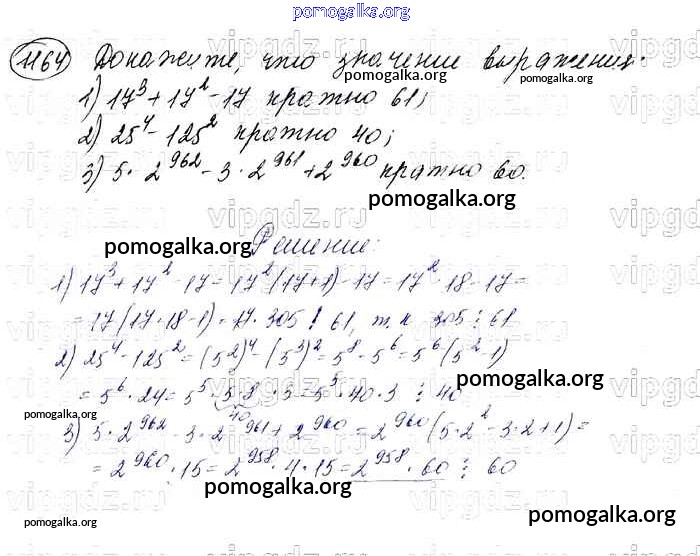 pomogalka.org
1164 Докажите, что значение выражения:
pomogalka.org pomogalka.org
1) 17³ + 17² - 17 кратно 61;
2) 25⁴ - 125² кратно 40;
3) 5 · 2⁹⁶² - 3 · 2⁹⁶¹ + 2⁹⁶⁰ кратно 60.
pomogalka.org
vipgdz.ru vipgdz.ru vipgdz.ru
pomogalka.org Решение:
1) 17³ + 17² - 17 = 17² (17+1) - 17 = 17² · 18 - 17 =
= 17 (17 · 18 - 1) = 17 · 305 ⋮ 61, т.к 305 ⋮ 61
2) 25⁴ - 125² = (5²)⁴ - (5³)² = 5⁸ - 5⁶ = 5⁶ (5² - 1)
= 5⁶ · 24 = 5⁵ · 5 · 8 · 3 = 5⁵ · 40 · 3 ⋮ 40
40
pomogalka.org pomogalka.org
3) 5 · 2⁹⁶² - 3 · 2⁹⁶¹ + 2⁹⁶⁰ = 2⁹⁶⁰ (5 · 2² - 3 · 2 + 1) =
= 2⁹⁶⁰ · 15 = 2⁹⁵⁸ · 4 · 15 = 2⁹⁵⁸ · 60 ⋮ 60
pomogalka.org
pomogalka.org pomogalka.org